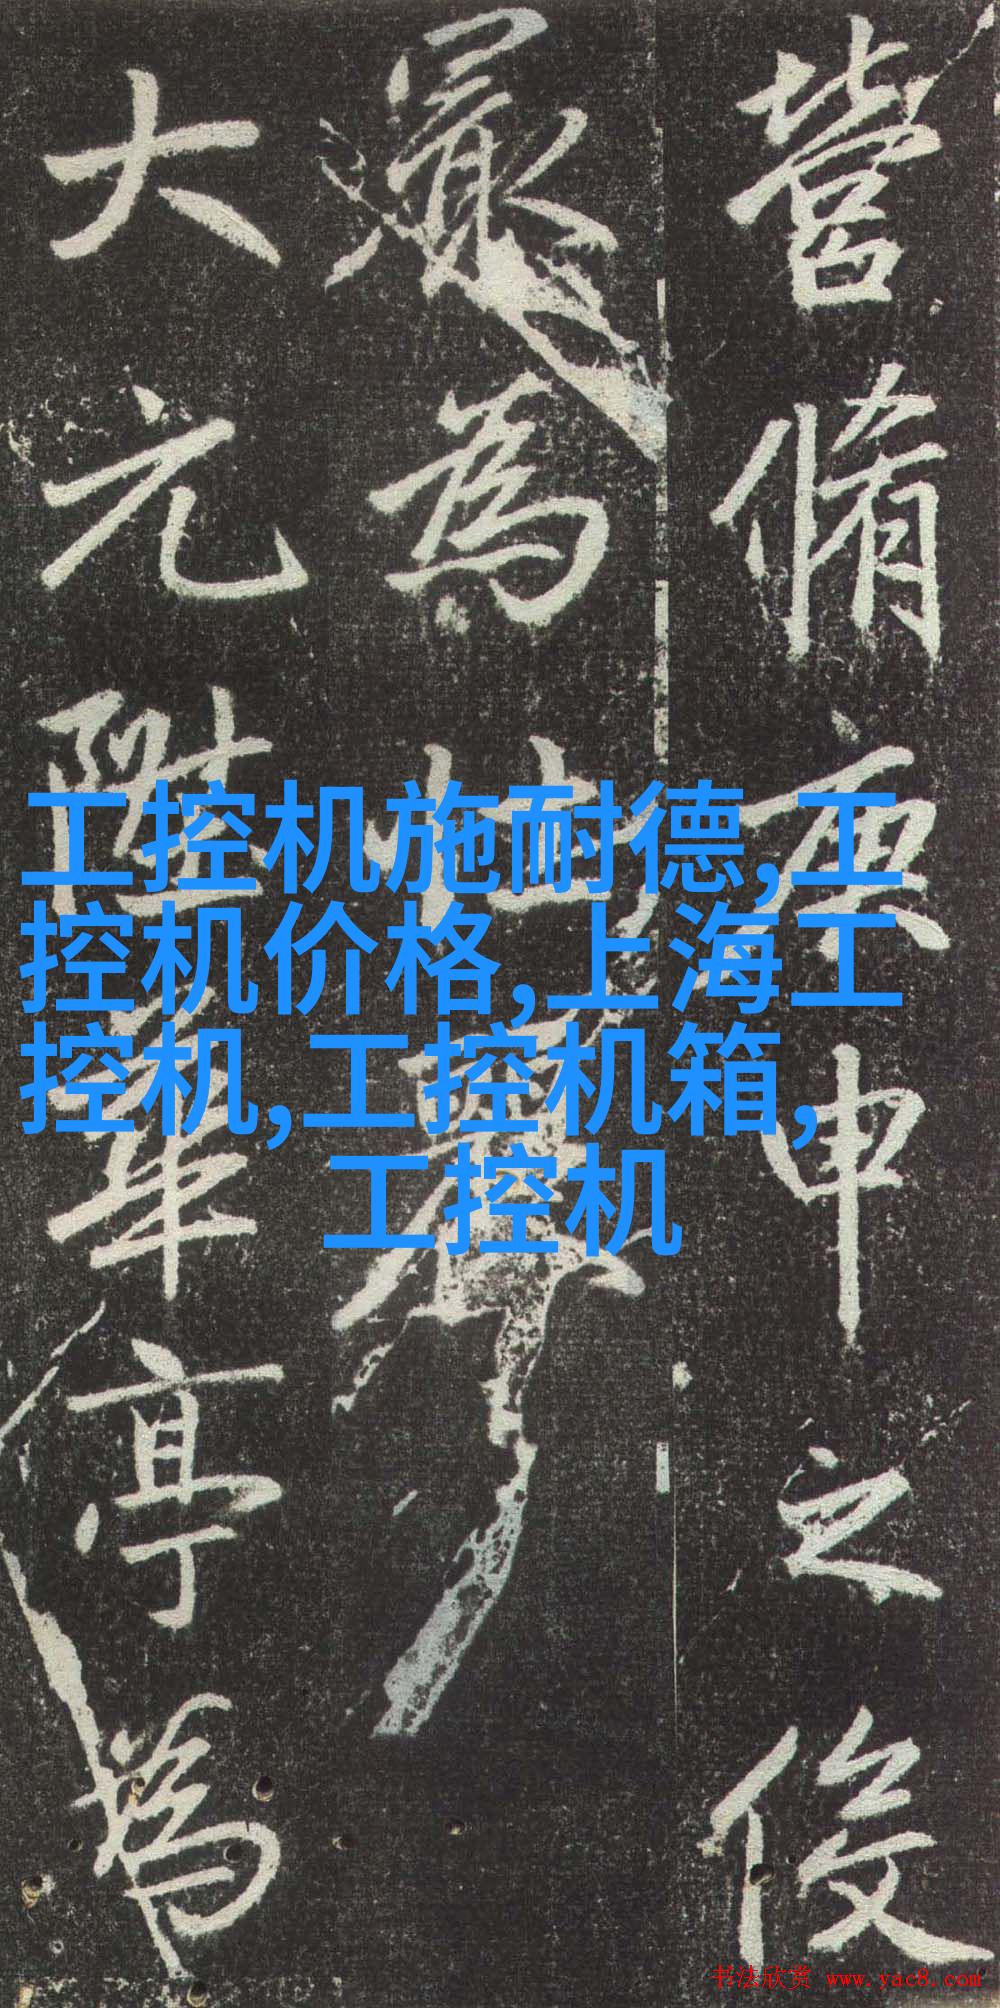 營脩庚申之
最為壯麗
大元陞華亭為
工控机施耐德,工
控机价格,上海工
控机,工控机箱,
工控机
书法欣赏 www.yac8.com